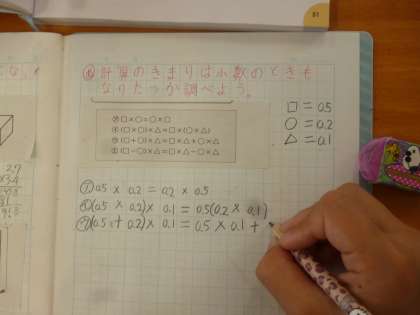 81
な。
め 計算のきまりは小数のときも
なりたつか調べよう。
㋐□×○=○×□
㋑(□×○)×△=□×(○×△)
㋒(□+○)×△=□×△+○×△
㋓(□-○)×△=□×△-○×△
□=0.5
○=0.2
△=0.1
㋐0.5 × 0.2 = 0.2 × 0.5
㋑(0.5 × 0.2) × 0.1 = 0.5(0.2 × 0.1)
㋒(0.5 + 0.2) × 0.1 = 0.5 × 0.1 +